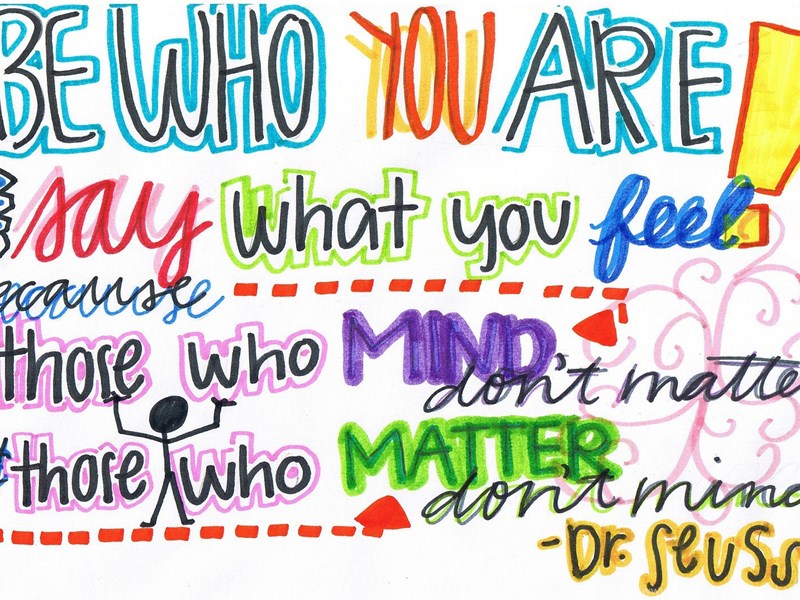 BE WHO YOU ARE!
& say what you feel
because
those who MIND don't matter
& those who MATTER don't mind
-Dr. Seuss